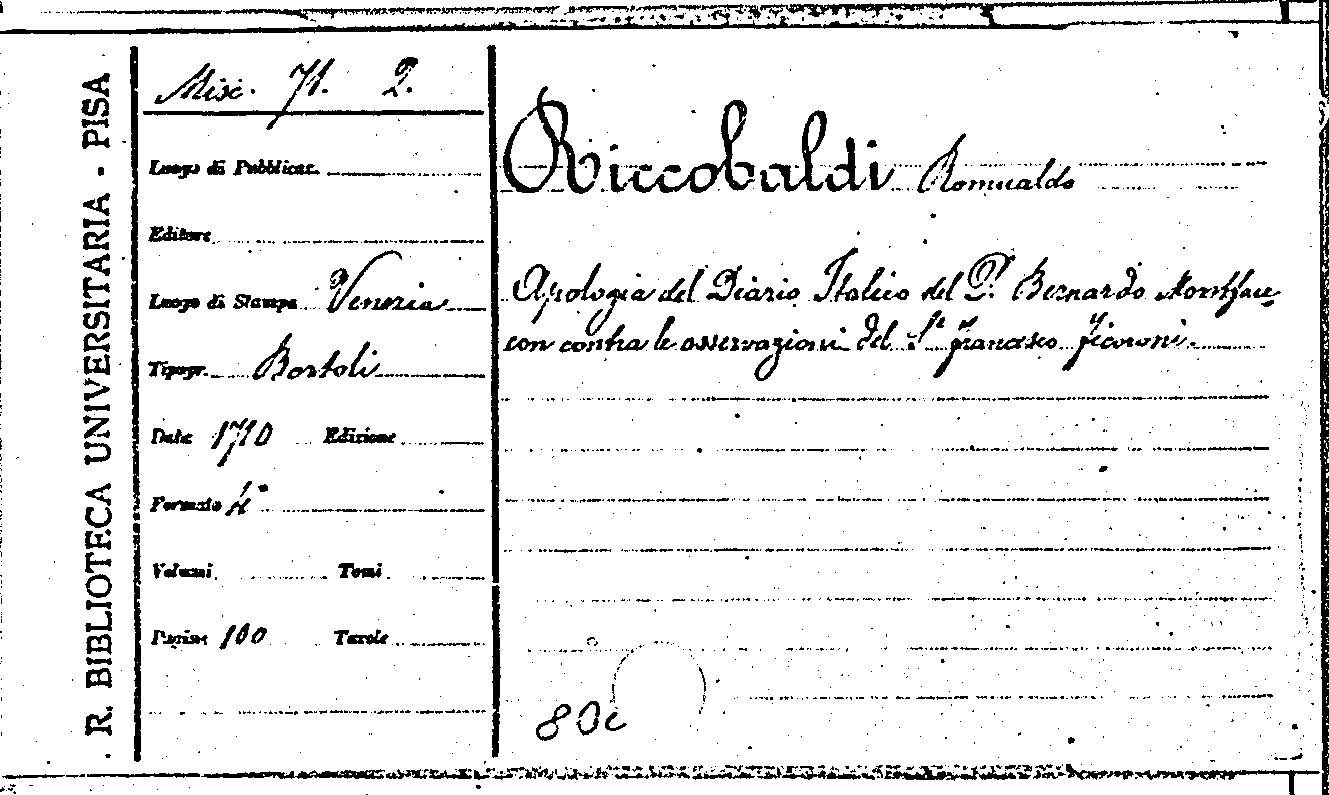 R. BIBLIOTECA UNIVERSITARIA - PISA
Misc. 71. 2.
Luogo di Pubblicaz.
Editore
Luogo di Stampa Venezia
Tipogr. Bortoli
Data 1710 Edizione
Formato 4°
Volumi Tomi
Pagine 100 Tavole
Riccobaldi Romualdo
Apologia del Diario Italico del P. Bernardo Montfau-
con contra le osservazioni del Sr Francesco Ficoroni.